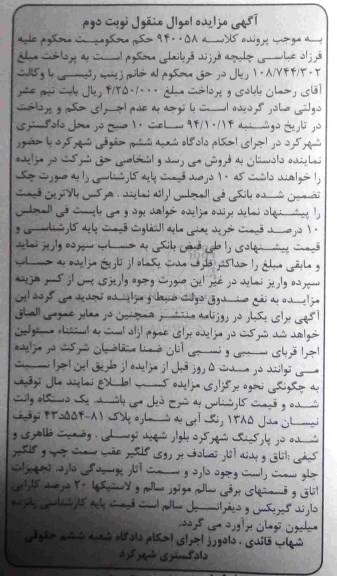 آگهی مزایده اموال منقول نوبت دوم
به موجب پرونده کلاسه ۹۴۰۰۵۸ حکم محکومیت محکوم علیه
فرزاد عباسی چلیچه فرزند قربانعلی محکوم است به پرداخت مبلغ
۱۰۸/۷۴۴/۳۰۲ ریال در حق محکوم له خانم زینب رئیسی با وکالت
آقای رحمان بابادی و پرداخت مبلغ ۴/۲۵۰/۰۰۰ ریال بابت نیم عشر
دولتی صادر گردیده است با توجه به عدم اجرای حکم و پرداخت
در تاریخ دوشنبه ۹۴/۱۰/۱۴ ساعت ۱۰ صبح در محل دادگستری
شهرکرد در اجرای احکام دادگاه شعبه ششم حقوقی شهرکرد با حضور
نماینده دادستان به فروش می رسد و اشخاصی حق شرکت در مزایده
را خواهند داشت که ۱۰ درصد قیمت پایه کارشناسی را به صورت چک
تضمین شده بانکی فی المجلس ارائه نمایند . هرکس بالاترین قیمت
را پیشنهاد نماید برنده مزایده خواهد بود و می بایست فی المجلس
۱۰ درصد قیمت خرید یعنی مابه التفاوت قیمت پایه کارشناسی و
قیمت پیشنهادی را طی فیش بانکی به حساب سپرده واریز نماید
و مابقی مبلغ را حداکثر ظرف مدت یکماه از تاریخ مزایده به حساب
سپرده واریز نماید در غیر این صورت وجوه واریزی پس از کسر هزینه
مزایده به نفع صندوق دولت ضبط و مزایده تجدید می گردد این
آگهی برای یکبار در روزنامه منتشر همچنین در معابر عمومی الصاق
خواهد شد شرکت در مزایده برای عموم آزاد است به استثناء مسئولین
اجرا قربای سببی و نسبی آنان ضمنا متقاضیان شرکت در مزایده
می توانند در مدت ۵ روز قبل از مزایده از طریق این اجرا نسبت
به چگونگی نحوه برگزاری مزایده کسب اطلاع نمایند مال توقیف
شده و قیمت کارشناس به شرح ذیل می باشد. یک دستگاه وانت
نیسان مدل ۱۳۸۵ رنگ آبی به شماره پلاک ۸۱-۵۵۴د۴۳ توقیف
شده در پارکینگ شهرکرد بلوار شهید توسلی . وضعیت ظاهری و
کیفی :اتاق و بدنه آثار تصادف بر روی گلگیر عقب سمت چپ و گلگیر
جلو سمت راست وجود دارد و سمت آثار پوسیدگی دارد. تجهیزات
اتاق و قسمتهای برقی سالم موتور سالم و لاستیکها ۲۰ درصد کارایی
دارند گیربکس و دیفرانسیل سالم است قیمت پایه کارشناسی پانزده
میلیون تومان برآورد می گردد.
شهاب قائدی . دادورز اجرای احکام دادگاه شعبه ششم حقوقی
دادگستری شهرکرد